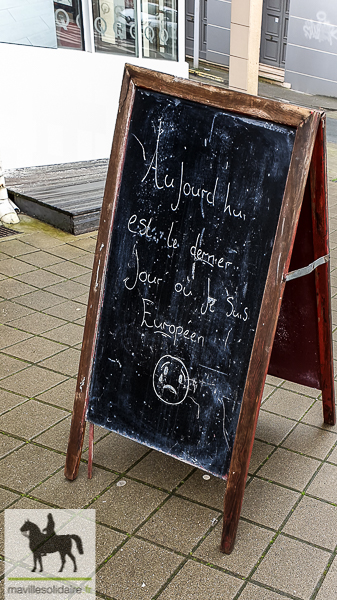 Aujourd'hui
est le dernier
Jour où Je Suis
Européen !
mavillesolidaire.fr